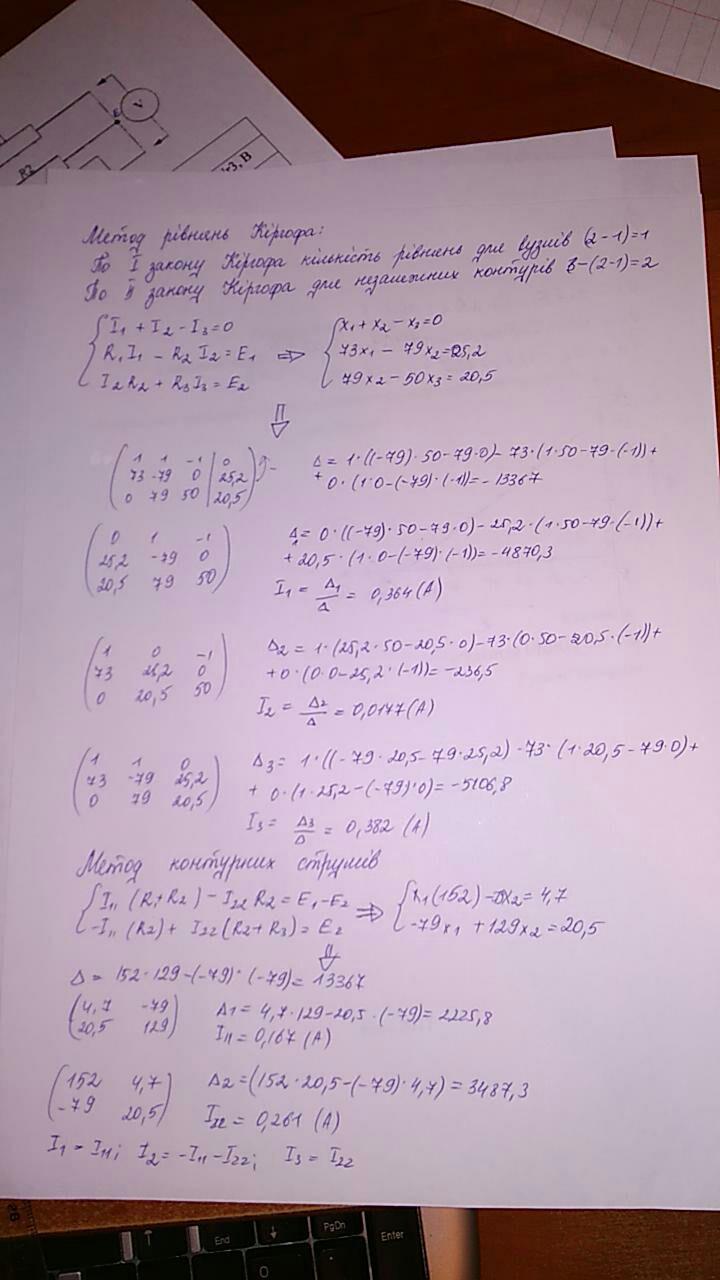 V
R2
r3, В
Метод рівнянь Кіргофа:
По I закону Кіргофа кількість рівнянь для вузлів (2-1)=1
По II закону Кіргофа для незалежних контурів 3-(2-1)=2
I1 + I2 - I3 = 0
R1I1 - R2 I2 = E1 ⇒
I2R2 + R3I3 = E2
x1 + x2 - x3 = 0
73x1 - 79x2 = 25,2
79x2 - 50x3 = 20,5
⇓
1 1 -1 | 0
73 -79 0 | 25,2
0 79 50 | 20,5
Δ = 1·((-79)·50-79·0)-73·(1·50-79·(-1))+
+0·(1·0-(-79)·(-1))=-13367
0 1 -1
25,2 -79 0
20,5 79 50
Δ1 = 0·((-79)·50-79·0)-25,2·(1·50-79·(-1))+
+20,5·(1·0-(-79)·(-1))=-4870,3
I1 = Δ1/Δ = 0,364(A)
1 0 -1
73 25,2 0
0 20,5 50
Δ2 = 1·(25,2·50-20,5·0)-73·(0·50-20,5·(-1))+
+0·(0·0-25,2·(-1))=-236,5
I2 = Δ2/Δ = 0,0177(A)
1 1 0
73 -79 25,2
0 79 20,5
Δ3 = 1·((-79·20,5-79·25,2)-73·(1·20,5-79·0)+
+ 0·(1·25,2-(-79)·0)=-5106,8
I3 = Δ3/Δ = 0,382 (A)
Метод контурних струмів
I11 (R1+R2) - I22 R2 = E1-E2 ⇒
-I11 (R2) + I22 (R2+R3) = E2
x1(152) - x2 = 4,7
-79x1 + 129x2 = 20,5
⇓
Δ = 152·129-(-79)·(-79)=13367
4,7 -79
20,5 129
Δ1 = 4,7·129-20,5·(-79)=2225,8
I11 = 0,167 (A)
152 4,7
-79 20,5
Δ2 = (152·20,5-(-79)·4,7) = 3487,3
I22 = 0,261 (A)
I1 = I11; I2 = -I11-I22; I3 = I22
End
↓
PgDn
Enter